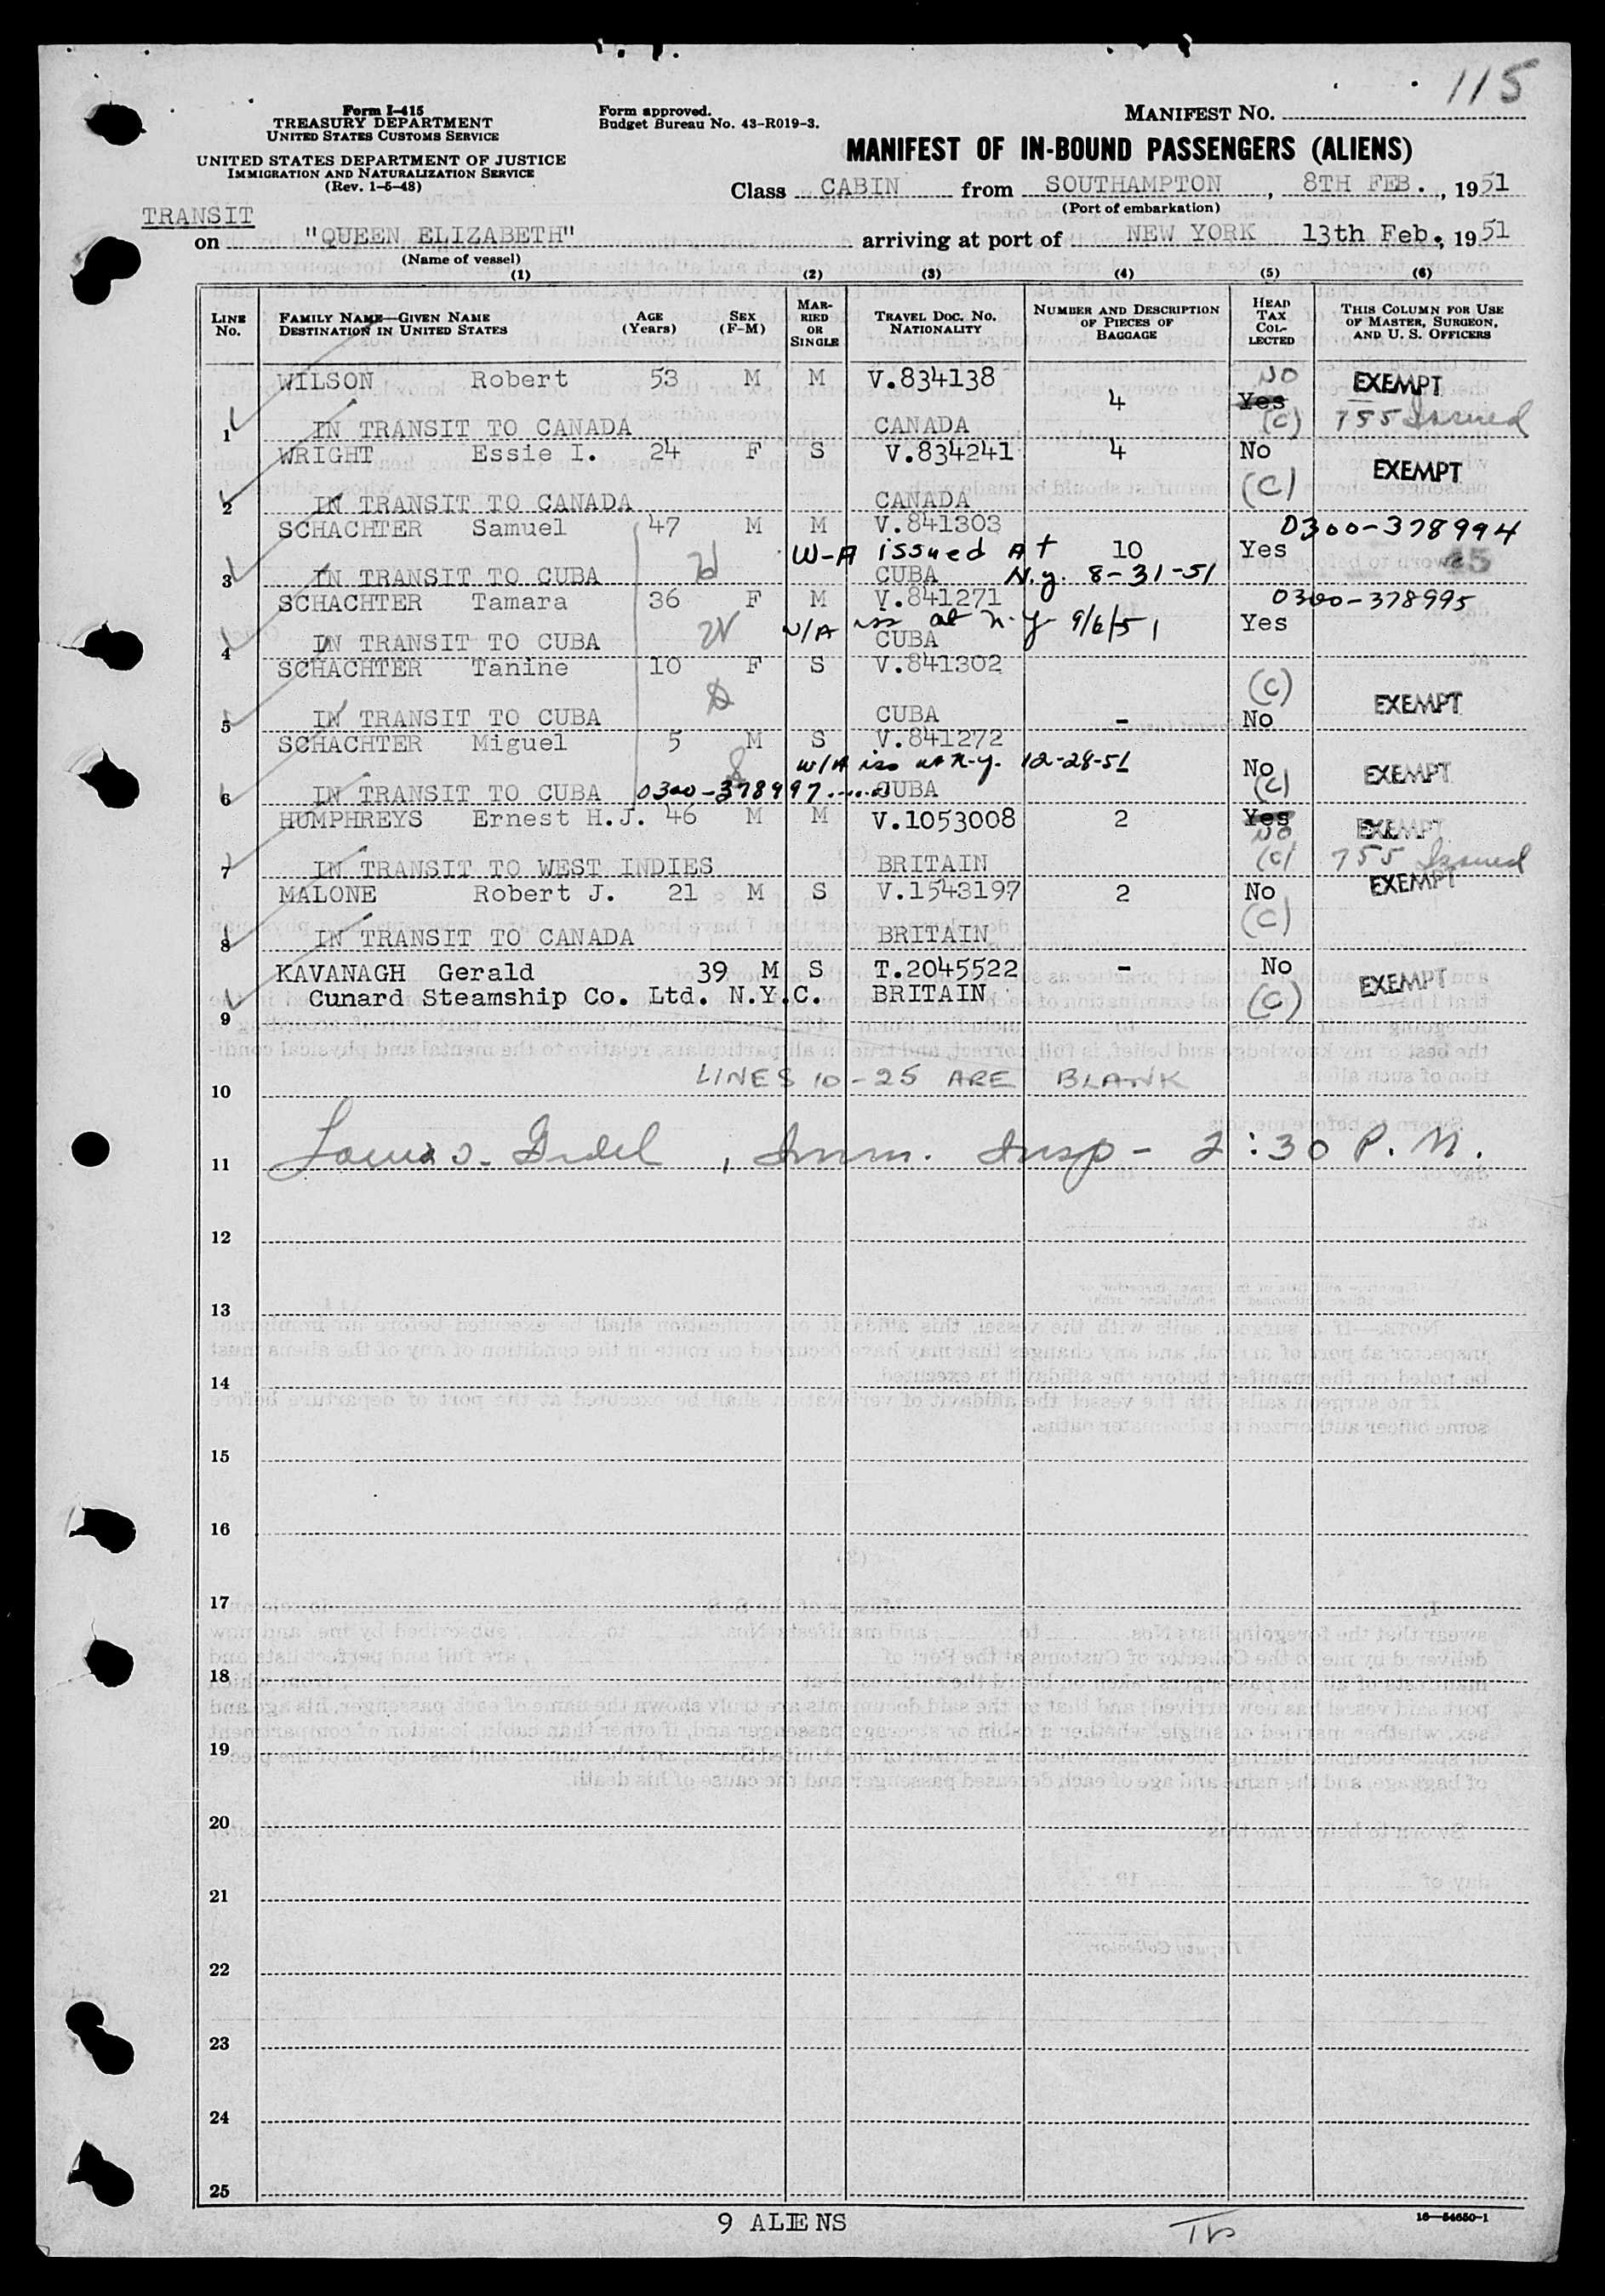 115
Form I-415
TREASURY DEPARTMENT
UNITED STATES CUSTOMS SERVICE
UNITED STATES DEPARTMENT OF JUSTICE
IMMIGRATION AND NATURALIZATION SERVICE
(Rev. 1-5-48)
Form approved.
Budget Bureau No. 43-R019-3.
MANIFEST NO.
MANIFEST OF IN-BOUND PASSENGERS (ALIENS)
Class CABIN from SOUTHAMPTON, 8TH FEB., 1951
(Port of embarkation)
TRANSIT
on "QUEEN ELIZABETH" arriving at port of NEW YORK 13th Feb., 1951
(Name of vessel)
(1) (2) (3) (4) (5) (6)
LINE No. FAMILY NAME—GIVEN NAME DESTINATION IN UNITED STATES AGE (Years) SEX (F-M) MARRIED OR SINGLE TRAVEL DOC. NO. NATIONALITY NUMBER AND DESCRIPTION OF PIECES OF BAGGAGE HEAD TAX COLLECTED THIS COLUMN FOR USE OF MASTER, SURGEON, AND U. S. OFFICERS
WILSON Robert 53 M M V.834138 4 NO Yes EXEMPT
1 IN TRANSIT TO CANADA CANADA (C) 755 Issued
WRIGHT Essie I. 24 F S V.834241 4 No EXEMPT
2 IN TRANSIT TO CANADA CANADA (C)
SCHACHTER Samuel 47 M M V.841303 0300-378994
W-A issued At 10 Yes
3 IN TRANSIT TO CUBA CUBA N.y. 8-31-51
SCHACHTER Tamara 36 F M V.841271 0300-378995
W/A iss at n.y 9/6/51 Yes
4 IN TRANSIT TO CUBA CUBA
SCHACHTER Tanine 10 F S V.841302 (C)
5 IN TRANSIT TO CUBA CUBA - No EXEMPT
SCHACHTER Miguel 5 M S V.841272
W/A iss at n.y. 12-28-51 No EXEMPT
6 IN TRANSIT TO CUBA 0300-378997 CUBA (C)
HUMPHREYS Ernest H.J. 46 M M V.1053008 2 Yes NO EXEMPT
7 IN TRANSIT TO WEST INDIES BRITAIN (C) 755 Issued
MALONE Robert J. 21 M S V.1543197 2 No EXEMPT
8 IN TRANSIT TO CANADA BRITAIN (C)
KAVANAGH Gerald 39 M S T.2045522 - No EXEMPT
Cunard Steamship Co. Ltd. N.Y.C. BRITAIN (C)
9
LINES 10-25 ARE BLANK
10
11 , Imm. Insp- 2:30 P.M.
12
13
14
15
16
17
18
19
20
21
22
23
24
25
9 ALIENS
16—54650-1